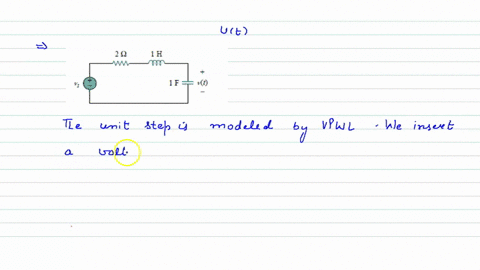 U(t)
⇒
2 Ω 1 H
+
vs 1 F v(t)
−
The unit step is modeled by VPWL . We insert
a volt